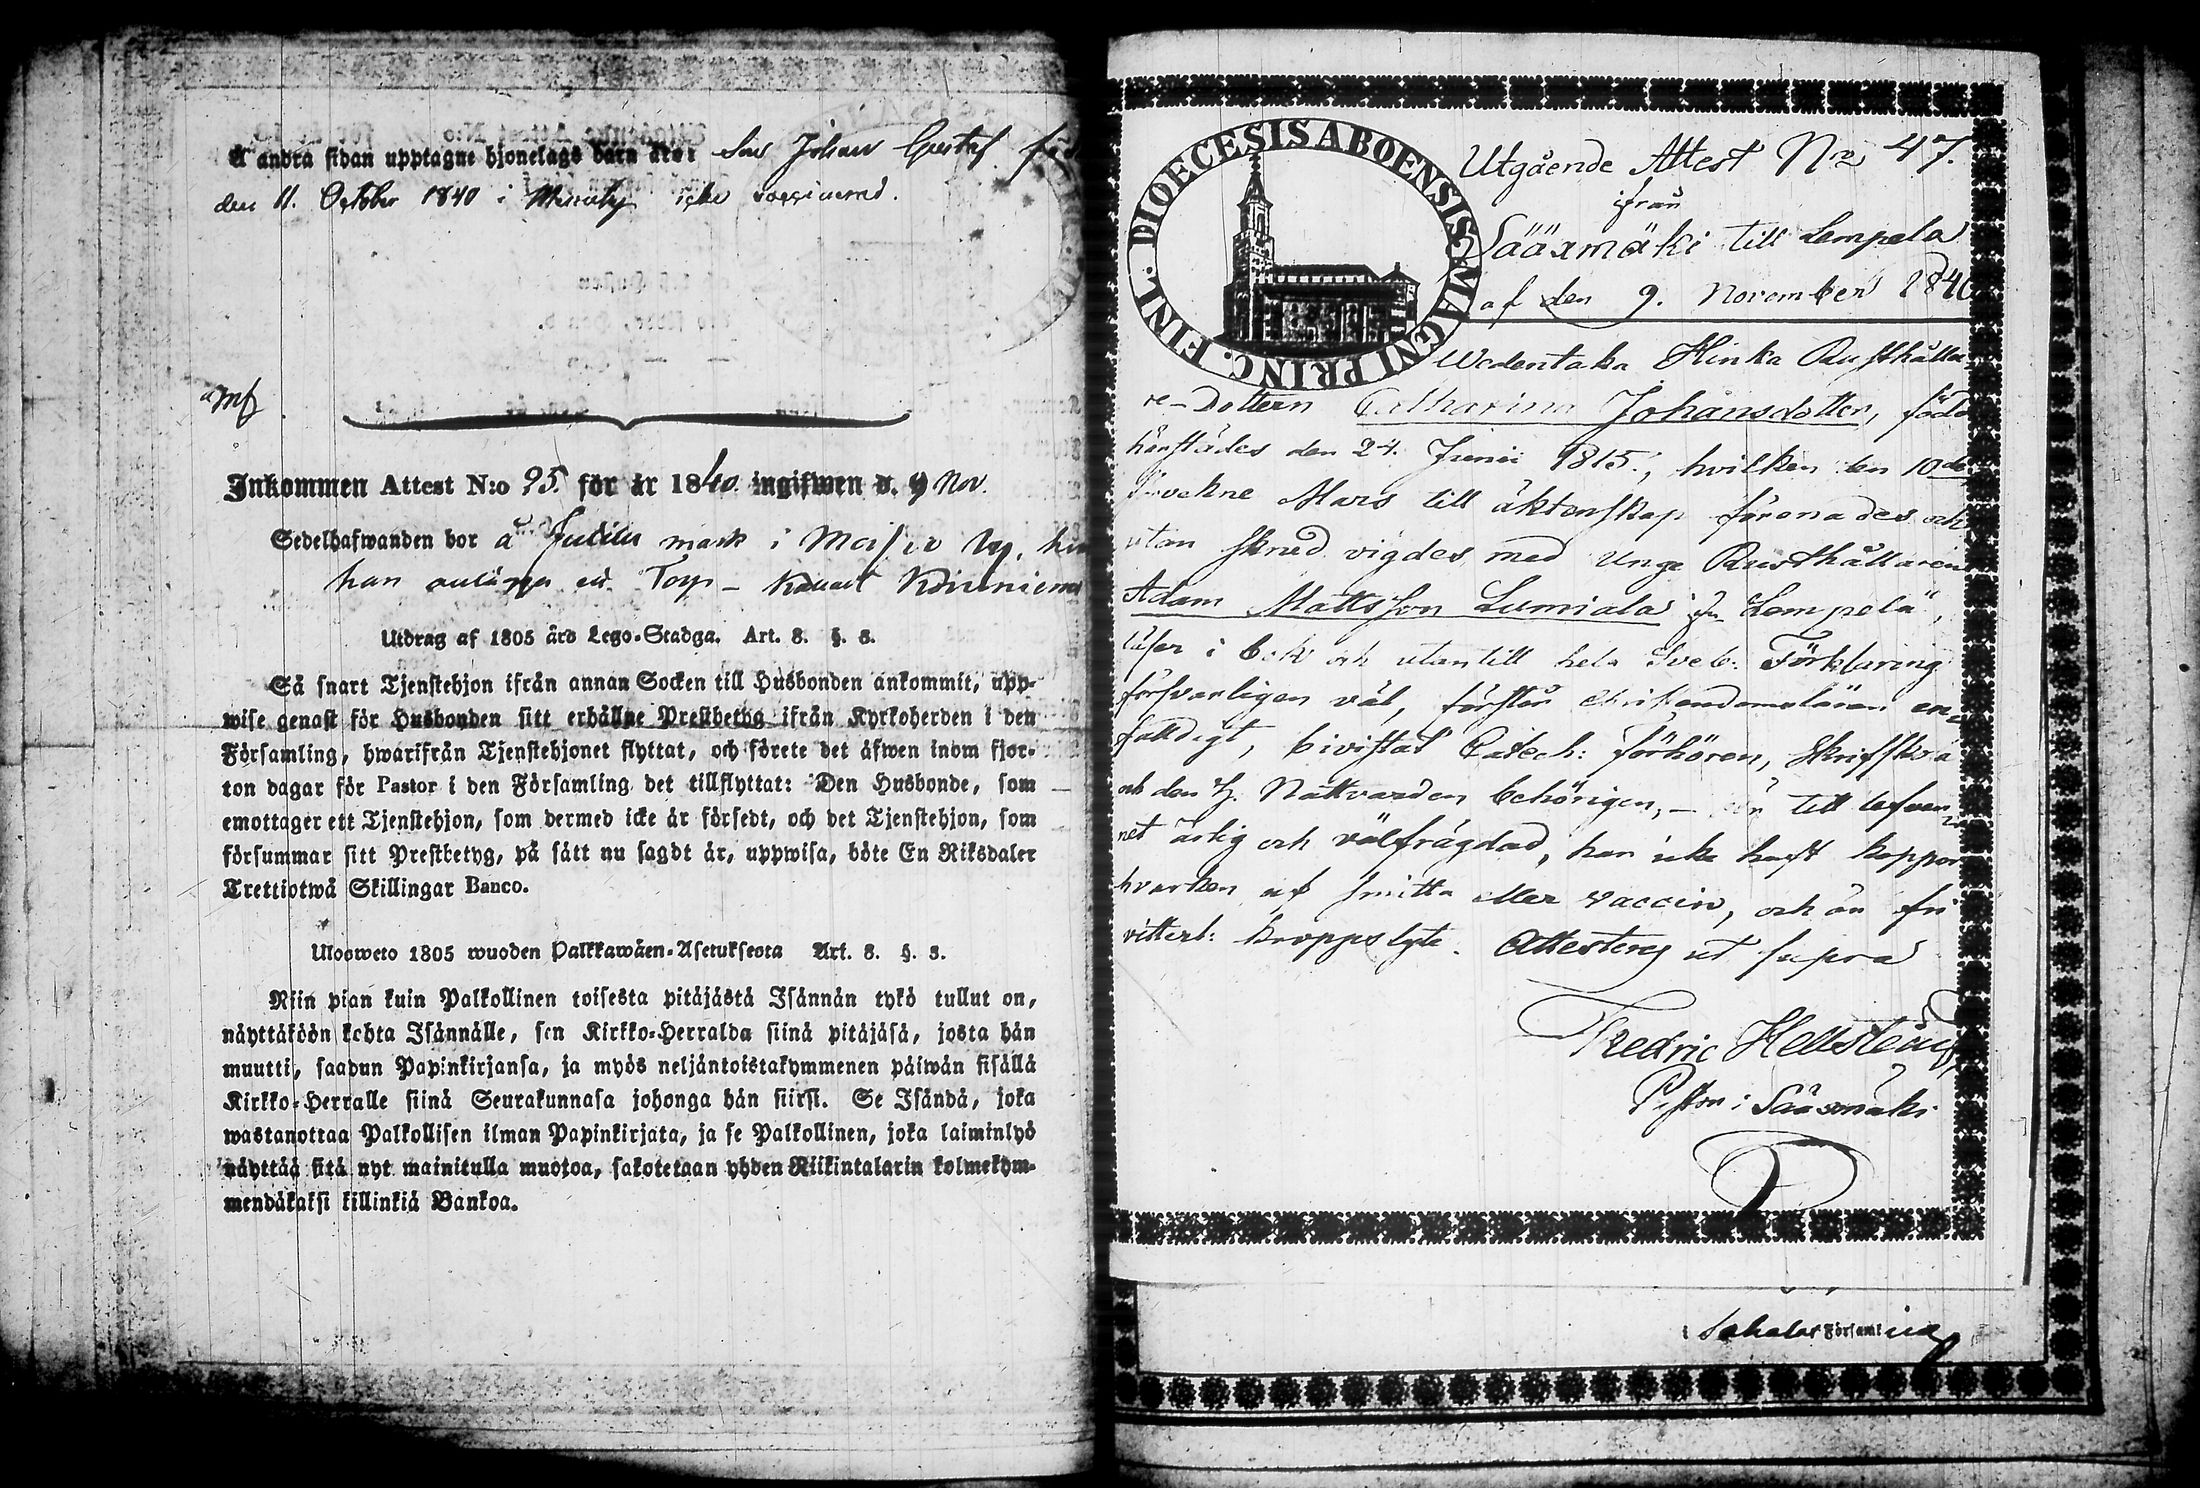 å andra sidan upptagne hjonelags barn äro: Son Johan Gustaf föd
den 11. October 1840 i                icke vaccinerad.
Inkommen Attest N:o 95. för år 1840. ingifwen d. 9 Nov.
Sedelhafwanden bor å         mark i         by,
han anlägga ett Torp
Utdrag af 1805 års Lego-Stadga. Art. 8. §. 3.
Så snart Tjenstehjon ifrån annan Socken till Husbonden ankommit, upp-
wise genast för Husbonden sitt erhållne Prestbetyg ifrån Kyrkoherden i den
Församling, hwarifrån Tjenstehjonet flyttat, och förete det äfwen inom fjor-
ton dagar för Pastor i den Församling det tillflyttat: Den Husbonde, som
emottager ett Tjenstehjon, som dermed icke är försedt, och det Tjenstehjon, som
försummar sitt Prestbetyg, på sätt nu sagdt är, uppwisa, böte En Riksdaler
Trettiotwå Skillingar Banco.
Ulosweto 1805 wuoden Palkkawäen-Asetuksesta Art. 8. §. 3.
Niin pian kuin Palkollinen toisesta pitäjästä Isännän tykö tullut on,
näyttäköön kohta Isännälle, sen Kirkko-Herralda siinä pitäjäsä, josta hän
muutti, saadun Papinkirjansa, ja myös neljäntoistakymmenen päiwän sisällä
Kirkko-Herralle siinä Seurakunnasa johonga hän siirsi. Se Isändä, joka
wastanottaa Palkollisen ilman Papinkirjata, ja se Palkollinen, joka laiminlyö
näyttää sitä nyt mainitulla muotoa, sakotetaan yhden Riikintalarin kolmekym-
mendäkaksi killinkiä Bankoa.
FINL. DIOECESIS ABOENSIS MAGNI PRINC.
Utgående Attest No 47.
ifrån
Sääxmäki till Lempela
af den 9. November 1840
Wedentaka Hinka Rusthålla
re-Dottern Catharina Johansdotter, född
härstädes den 24. Junii 1815, hvilken den 10de
      Mars till äktenskap förenades och
utan skrud vigdes med Unge Rusthållaren
Adam Mattsson Lumiala ifr. Lempelä,
läser i bok och utantill hela Sveb. Förklaring
försvarligen väl, förstår christendomsläran en-
faldigt, bivistat Catech: förhören, Skriftskol
och den H. Nattvarden behörigen, – är till lefver-
net ärlig och välfrägdad, har icke haft koppor
hvarken af smitta eller vaccin, och är fri
vitterl: kroppslyte. Attesterar ut supra
Fredric Hellsteen,
Pastor i Sääxmäki.
i Sahalax Församling